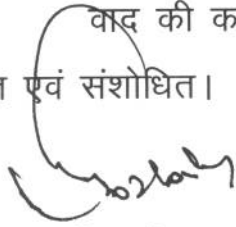 वाद की क
एवं संशोधित।